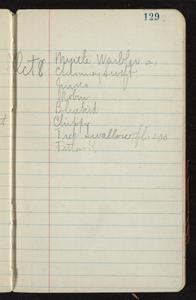 129
Oct 8 Myrtle Warbler
Chimney Swift
Junco
Robin
Bluebird
Chippy
Tree Swallow fl. 200